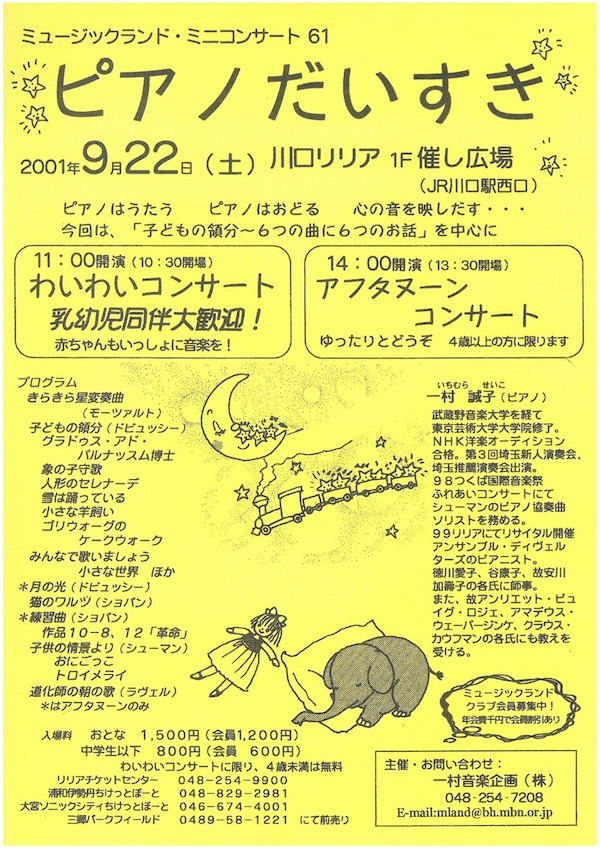 ミュージックランド・ミニコンサート 61
ピアノだいすき
2001年9月22日（土） 川口リリア 1F 催し広場
（JR川口駅西口）
ピアノはうたう　ピアノはおどる　心の音を映しだす・・・
今回は、「子どもの領分～６つの曲に６つのお話」を中心に
11：00開演（10：30開場）
わいわいコンサート
乳幼児同伴大歓迎！
赤ちゃんもいっしょに音楽を！
14：00開演（13：30開場）
アフタヌーン
コンサート
ゆったりとどうぞ　４歳以上の方に限ります
プログラム
きらきら星変奏曲
（モーツァルト）
子どもの領分（ドビュッシー）
グラドゥス・アド・
パルナッスム博士
象の子守歌
人形のセレナーデ
雪は踊っている
小さな羊飼い
ゴリウォーグの
ケークウォーク
みんなで歌いましょう
小さな世界　ほか
＊月の光（ドビュッシー）
猫のワルツ（ショパン）
＊練習曲（ショパン）
作品１０－８、１２「革命」
子供の情景より（シューマン）
おにごっこ
トロイメライ
道化師の朝の歌（ラヴェル）
＊はアフタヌーンのみ
いちむら　せいこ
一村　誠子（ピアノ）
武蔵野音楽大学を経て
東京芸術大学大学院修了。
ＮＨＫ洋楽オーディション
合格。第３回埼玉新人演奏会、
埼玉推薦演奏会出演。
９８つくば国際音楽祭
ふれあいコンサートにて
シューマンのピアノ協奏曲
ソリストを務める。
９９リリアにてリサイタル開催
アンサンブル・ディヴェル
ターズのピアニスト。
徳川愛子、谷康子、故安川
加壽子の各氏に師事。
また、故アンリエット・ピュ
イグ・ロジェ、アマデウス・
ウェーバージンケ、クラウス・
カウフマンの各氏にも教えを
受ける。
ミュージックランド
クラブ会員募集中！
年会費千円で会員割引あり
入場料　おとな　１，５００円（会員１，２００円）
中学生以下　８００円（会員　６００円）
わいわいコンサートに限り、４歳未満は無料
リリアチケットセンター　０４８-２５４-９９００
浦和伊勢丹ちけっとぽーと　０４８-８２９-２９８１
大宮ソニックシティちけっとぽーと　０４６-６７４-４００１
三郷パークフィールド　０４８９-５８-１２２１　にて前売り
主催・お問い合わせ：
一村音楽企画（株）
０４８-２５４-７２０８
E-mail:mland@bh.mbn.or.jp